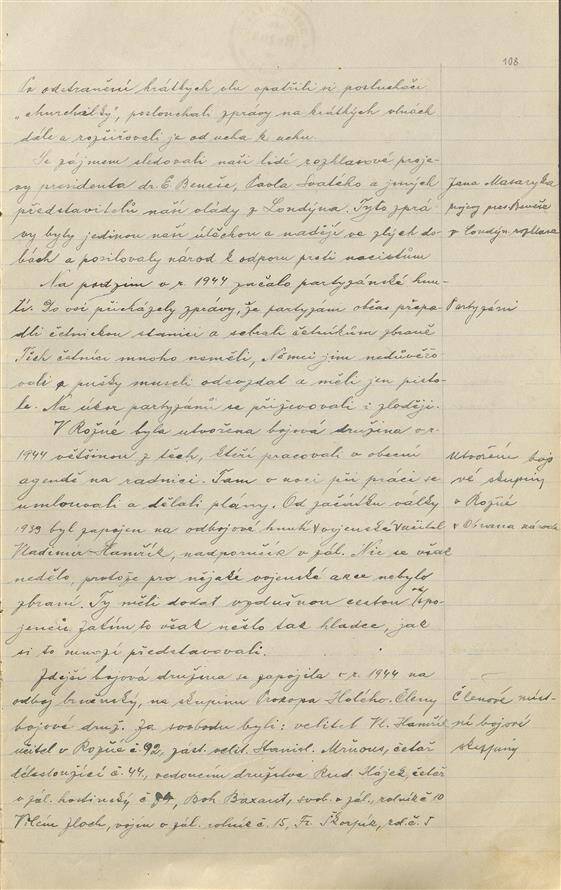 108
Po odstranění krátkých vln opatřili si posluchači
„churchilky", poslouchali zprávy na krátkých vlnách
dále a rozšiřovali je od ucha k uchu.
Se zájmem sledovali naši lidé rozhlasové proje-
vy presidenta dr. E. Beneše, Pavla Svatého a jiných
Jana Masaryka
představitelů naší vlády z Londýna. Tyto zprá-
projevy pres. Beneše
vy byly jedinou naší útěchou a nadějí ve zlých do-
v Londýn. rozhlase
bách a posilovaly národ k odporu proti nacistům
Na podzim v r. 1944 začalo partyzánské hnu-
tí. Do vsi přicházely zprávy, že partyzáni občas přepa-
Partyzáni
dli četnickou stanici a sebrali četníkům zbraně
Těch četníci mnoho neměli, Němci jim nedůvěřo-
vali a pušky museli odevzdat a měli jen pisto-
le. Na úkor partyzánů se přiživovali i zloději.
V Rožné byla utvořena bojová družina v r.
1944 většinou z těch, kteří pracovali v obecní
Utvoření bojo
agendě na radnici. Tam v noci při práci se
vé skupiny
umlouvali a dělali plány. Od začátku války
v Rožné
1939 byl zapojen na odbojové hnutí vojenské učitel
Obrana národa
Vladimír Hamřík, nadporučík v zál. Nic se však
nedělo, protože pro nějaké vojenské akce nebylo
zbraní. Ty měli dodat vzdušnou cestou spo-
jenci. Zatím to však nešlo tak hladce, jak
si to mnozí představovali.
Zdejší bojová družina se zapojila v r. 1944 na
odboj brněnský, na skupinu Prokopa Holého. Členy
Členové míst-
bojové druž. Za svobodu byli: velitel Vl. Hamřík
ní bojové
učitel v Rožné č. 92, zást. velit. Stanisl. Mrňous, četař
skupiny
délesloužící č. 44, vedoucím družstva Rud. Hájek, četař
v zál. hodinský č., Boh. Baxant, svob. v zál., rolník č. 10
Vilém Zloch, vojín v zál. rolník č. 15, Fr. Škorpík, rol. č. 5